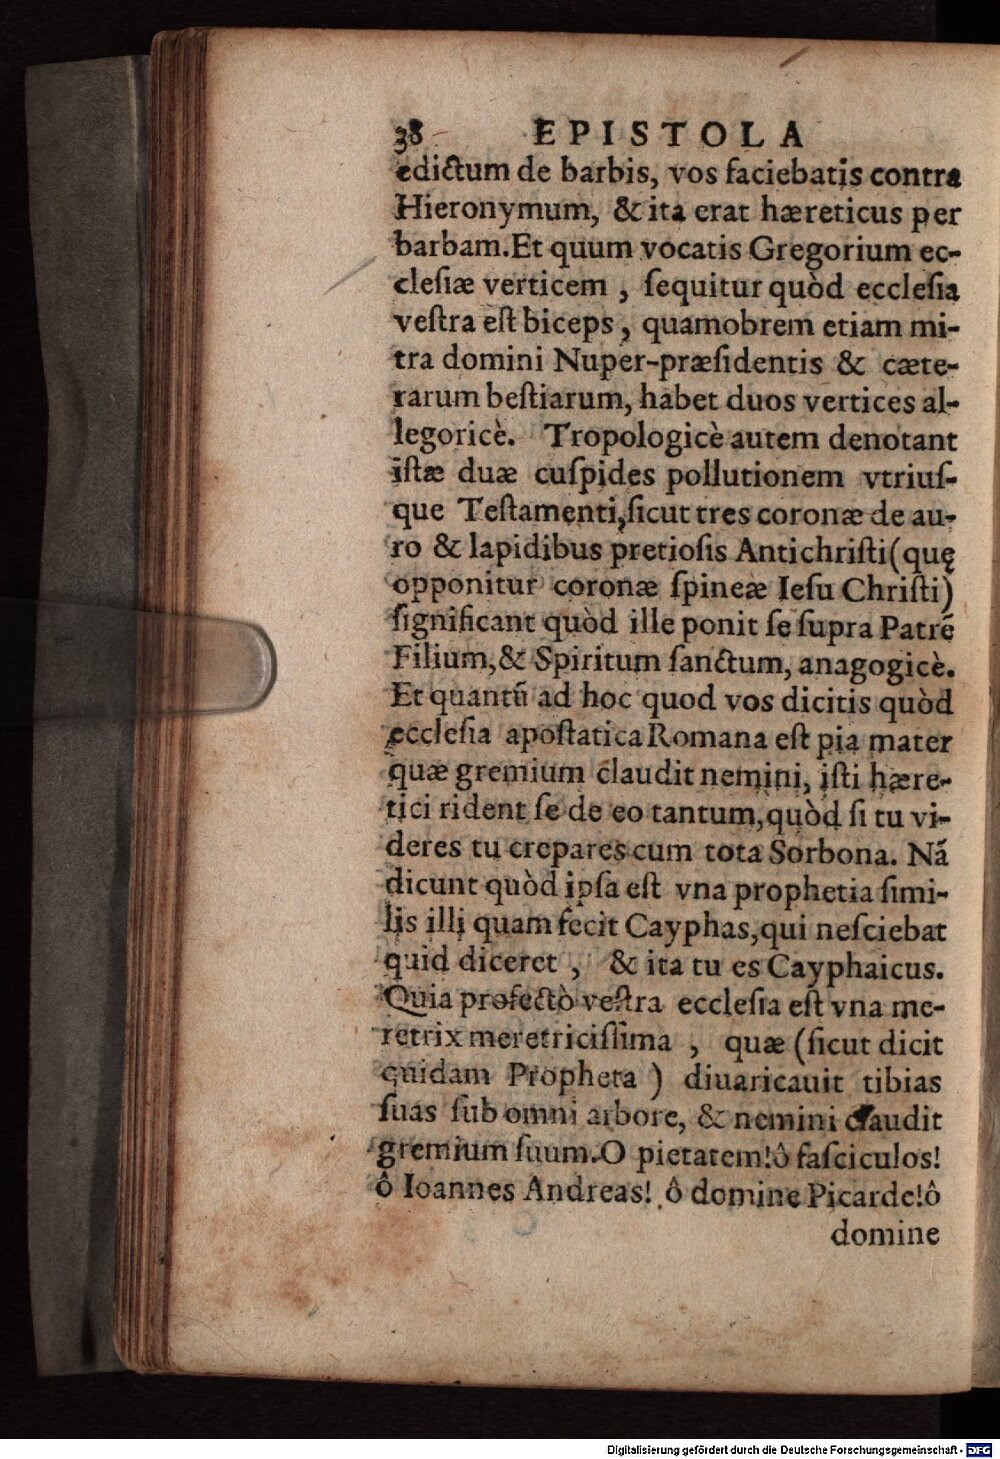 38 EPISTOLA
edictum de barbis, vos faciebatis contra
Hieronymum, & ita erat hæreticus per
barbam.Et quum vocatis Gregorium ec-
cleſiæ verticem , ſequitur quòd eccleſia
veſtra eſt biceps, quamobrem etiam mi-
tra domini Nuper-præſidentis & cæte-
rarum beſtiarum, habet duos vertices al-
legoricè. Tropologicè autem denotant
iſtæ duæ cuſpides pollutionem vtriuſ-
que Teſtamenti,ſicut tres coronæ de au-
ro & lapidibus pretioſis Antichriſti(quę
opponitur coronæ ſpineæ Ieſu Chriſti)
ſignificant quòd ille ponit ſe ſupra Patrē
Filium,& Spiritum ſanctum, anagogicè.
Et quantū ad hoc quod vos dicitis quòd
eccleſia apoſtatica Romana eſt pia mater
quæ gremium claudit nemini, iſti hære-
tici rident ſe de eo tantum,quòd ſi tu vi-
deres tu crepares cum tota Sorbona. Nā
dicunt quòd ipſa eſt vna prophetia ſimi-
lis illi quam fecit Cayphas,qui neſciebat
quid diceret , & ita tu es Cayphaicus.
Quia profectò veſtra eccleſia eſt vna me-
retrix meretriciſſima , quæ (ſicut dicit
quidam Propheta ) diuaricauit tibias
ſuas ſub omni arbore, & nemini claudit
gremium ſuum.O pietatem!ô faſciculos!
ô Ioannes Andreas! ô domine Picarde!ô
domine
Digitalisierung gefördert durch die Deutsche Forschungsgemeinschaft - DFG